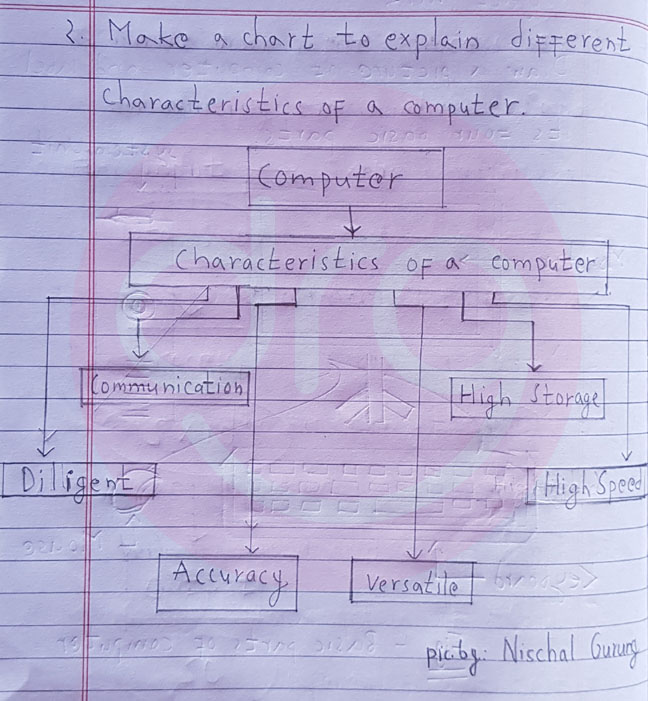 2. Make a chart to explain different
characteristics of a computer.
Computer
Characteristics of a computer
Communication
High Storage
Diligent
High Speed
Accuracy
Versatile
pic.by: Nischal Gurung